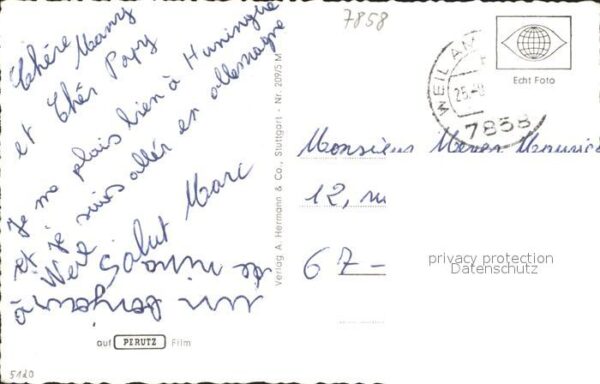 Chère Mamy
et Cher Papy
Je me plais bien à Huningue
et je suis allér en allemagne
Weil Salut Marc
à
7858
WEIL AM
25.
7858
Echt Foto
Monsieur Meyer Maurice
12,
67-
privacy protection
Datenschutz
Verlag A. Hermann & Co., Stuttgart - Nr. 209/5 M
auf PERUTZ Film
5120